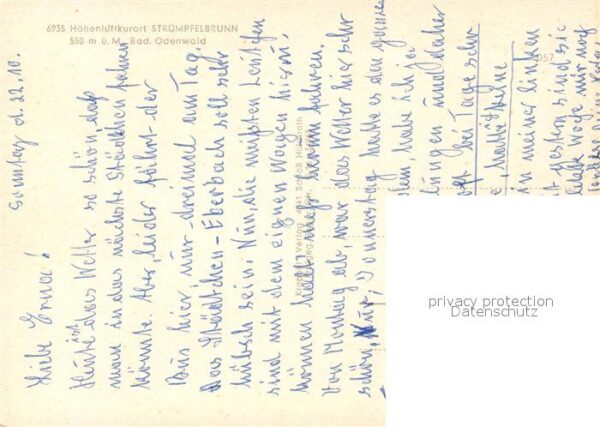 6935 Höhenluftkurort STRÜMPFELBRUNN
550 m ü. M. Bad. Odenwald
Sonntag d. 22.10.
Liebe Erna!
Heute ist das Wetter so schön, daß
man in das nächste Städtchen fahren
könnte. Aber, leider fährt der
Bus hier, nur dreimal am Tag.
Das Städtchen-Eberbach soll sehr
hübsch sein. Nun, die meisten Leute
sind mit dem eignen Wagen hier u.
können halt mehr herum fahren.
Von Montag ab, war das Wetter hier sehr
schön, Nur, Donnerstag hatte es den ganzen
habe ich ja
lungen und daher
oft bei Tage sehr
in meiner linken
gestern sind sie
Woche
Verlag
057
privacy protection
Datenschutz